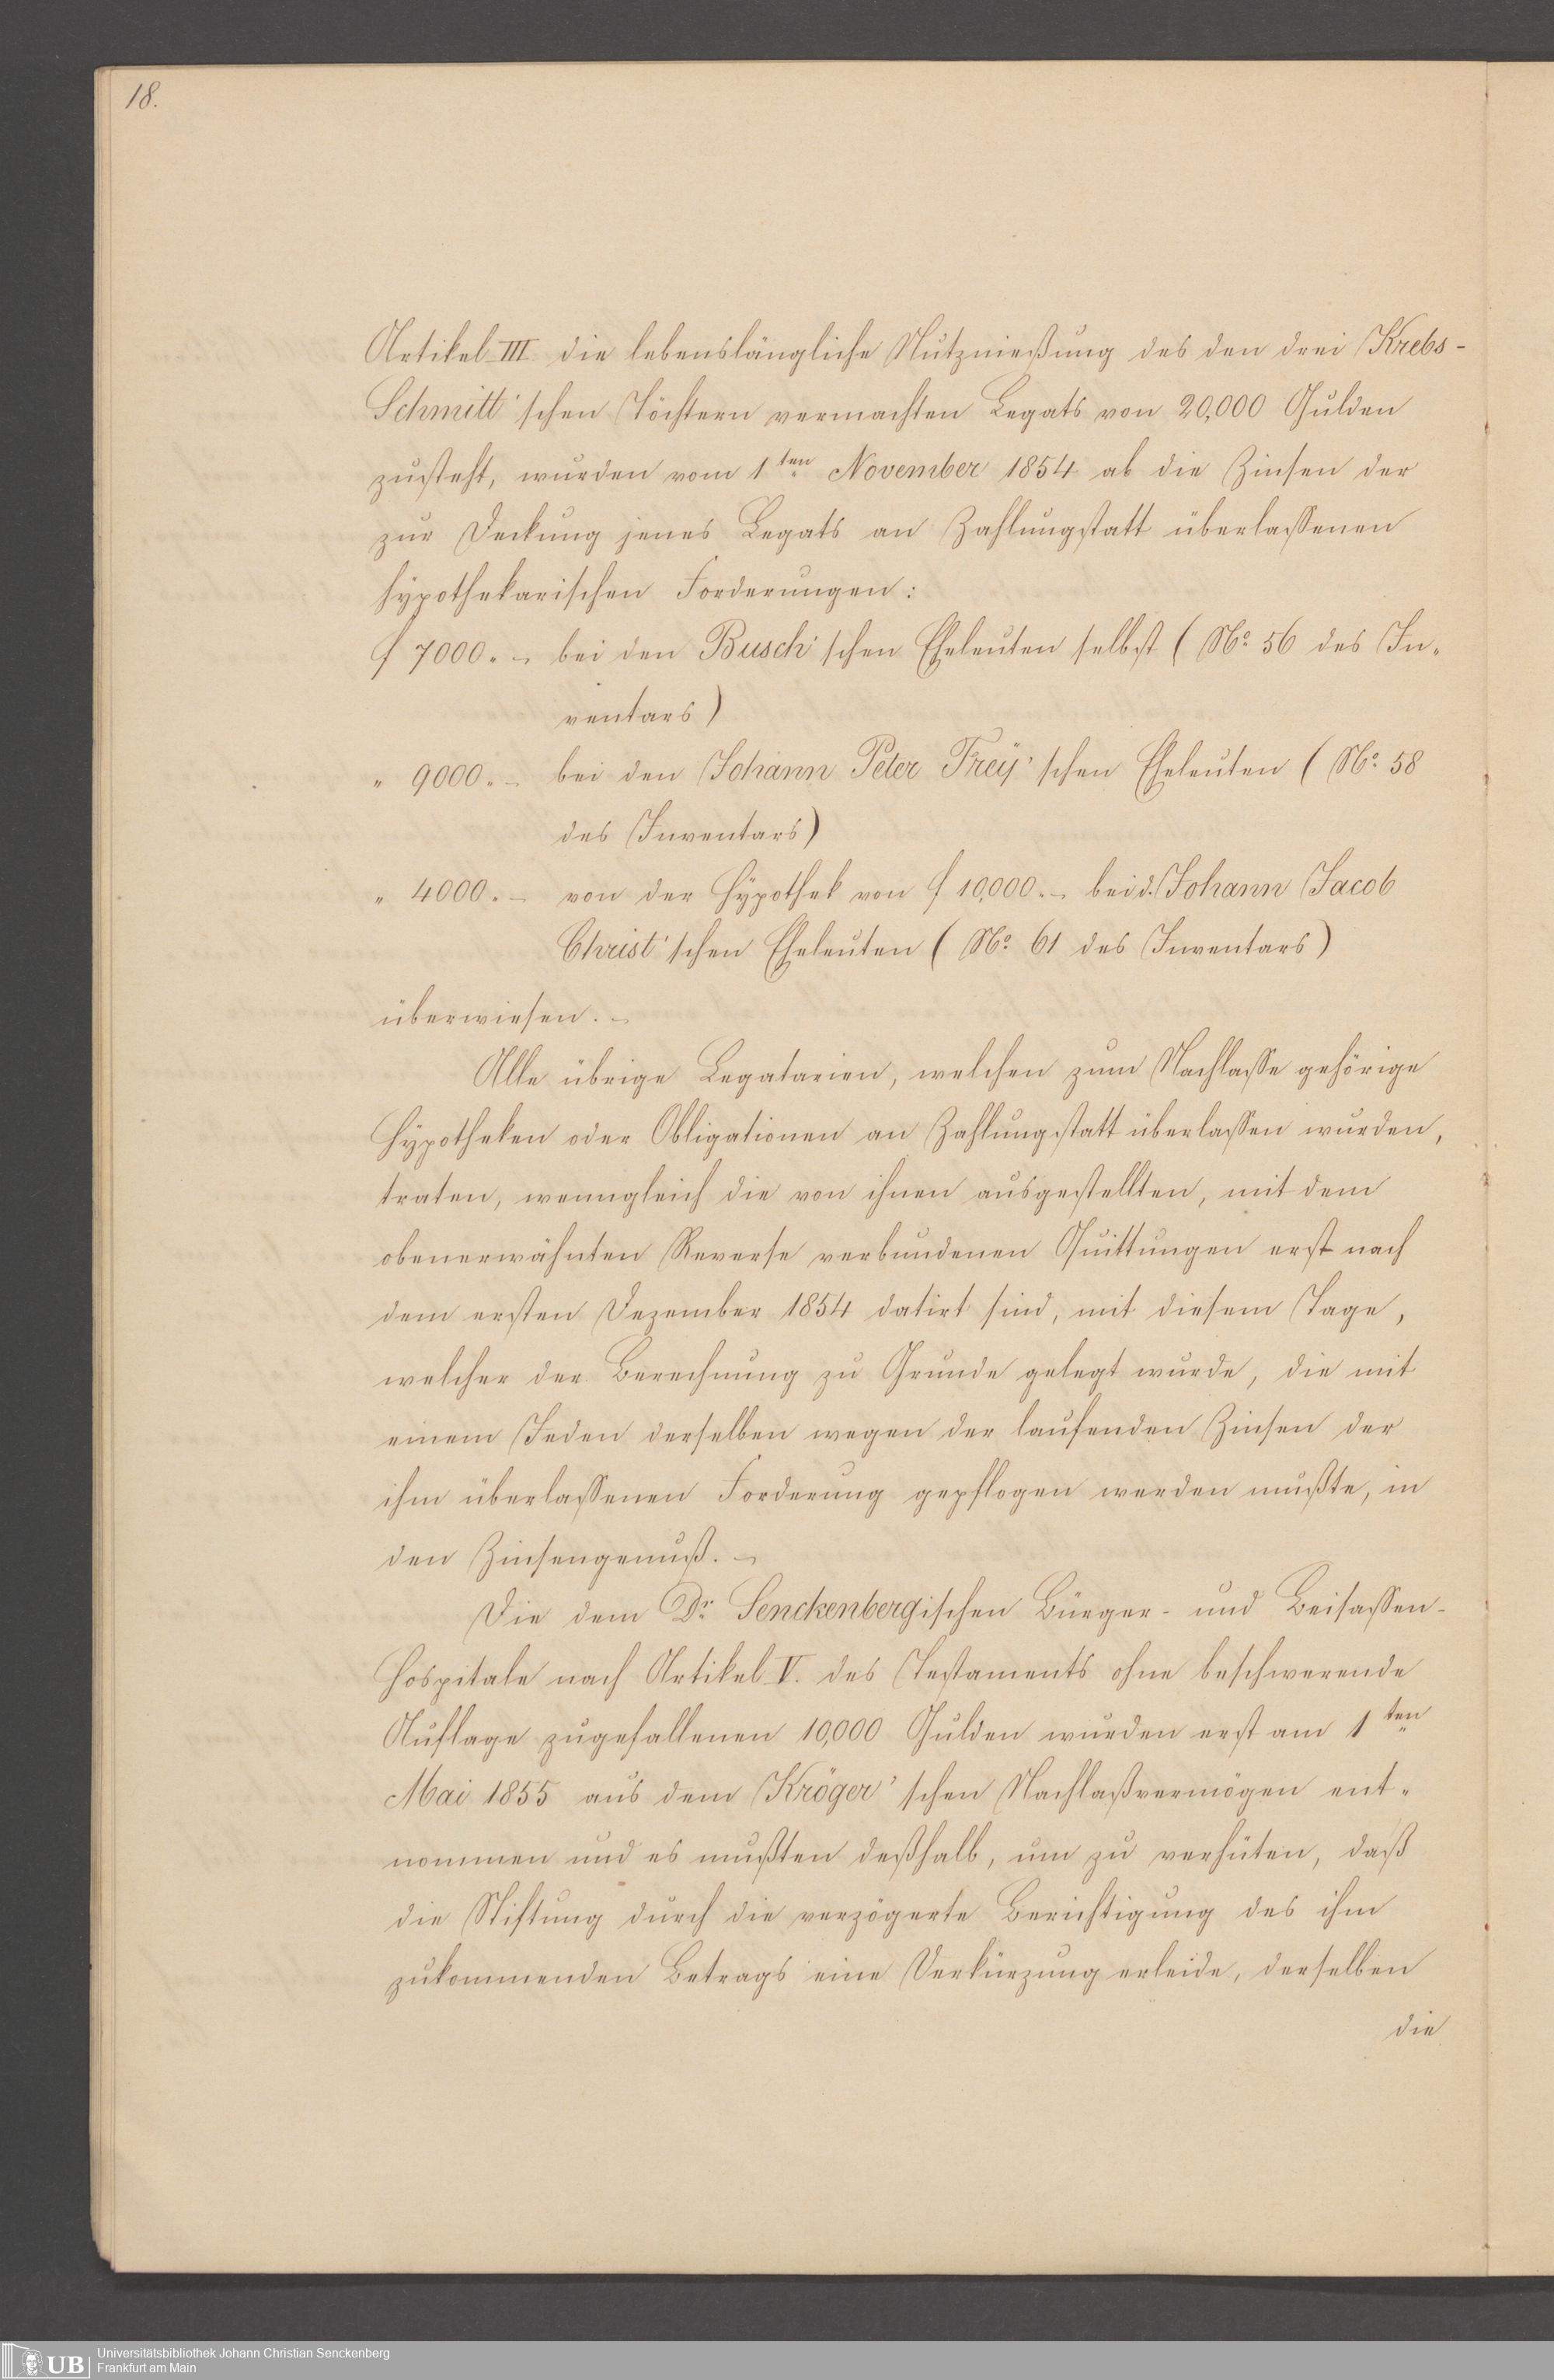 18.
Artikel III die lebenslängliche Nutznießung des den drei Krebs-
Schmitt'schen Töchtern vermachten Legats von 20,000 Gulden
zusteht, wurden vom 1ten November 1854 ab die Zinsen der
zur Deckung jenes Legats an Zahlungstatt überlassenen
hypothekarischen Forderungen:
f 7000.- bei den Busch'schen Eheleuten selbst (No. 56 des In-
ventars)
" 9000.- bei den Johann Peter Freÿ'schen Eheleuten (No. 58
des Inventars)
" 4000.- von der Hÿpothek von f 10,000.- bei d. Johann Jacob
Christ'schen Eheleuten (No. 61 des Inventars)
überwiesen.-
Alle übrige Legatarien, welchen zum Nachlasse gehörige
Hÿpotheken oder Obligationen an Zahlungstatt überlassen wurden,
traten, wenngleich die von ihnen ausgestellten, mit dem
obenerwähnten Reverse verbundenen Quittungen erst nach
dem ersten Dezember 1854 datirt sind, mit diesem Tage,
welcher der Berechnung zu Grunde gelegt wurde, die mit
einem Jeden derselben wegen der laufenden Zinsen der
ihm überlassenen Forderung gepflogen werden mußte, in
den Zinsengenuß.-
Die dem Dr. Senckenbergischen Bürger- und Beisassen-
Hospitale nach Artikel V. des Testaments ohne beschwerende
Auflage zugefallenen 10,000 Gulden wurden erst am 1ten
Mai 1855 aus dem Kröger'schen Nachlaßvermögen ent-
nommen und es mußten deßhalb, um zu verhüten, daß
die Stiftung durch die verzögerte Berichtigung des ihm
zukommenden Betrags eine Verkürzung erleide, derselben
die
UB
Universitätsbibliothek Johann Christian Senckenberg
Frankfurt am Main